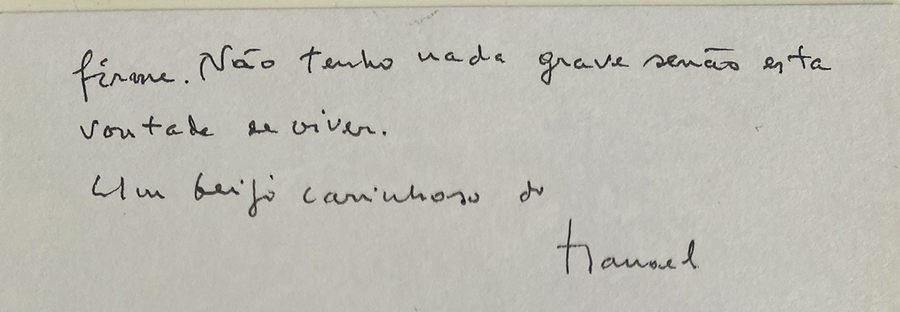 firme. Não tenho nada grave senão esta
vontade de viver.
Um beijo carinhoso do
Manoel